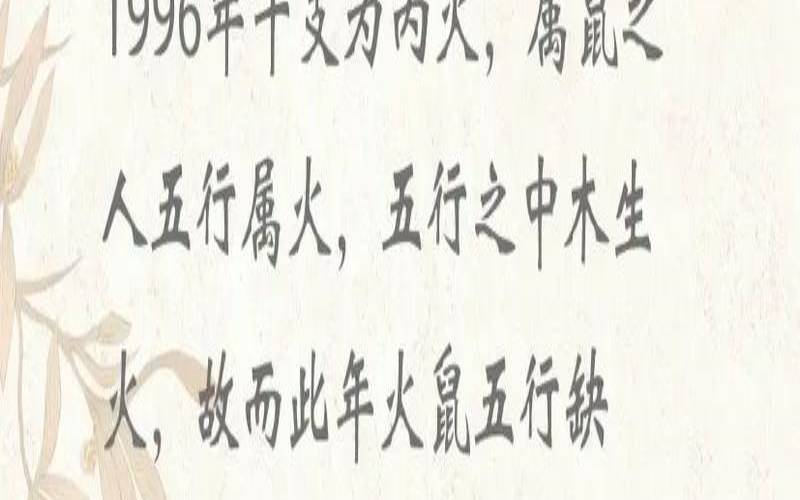 1996年干支为丙火，属鼠之
人五行属火，五行之中木生
火，故而此年火鼠五行缺